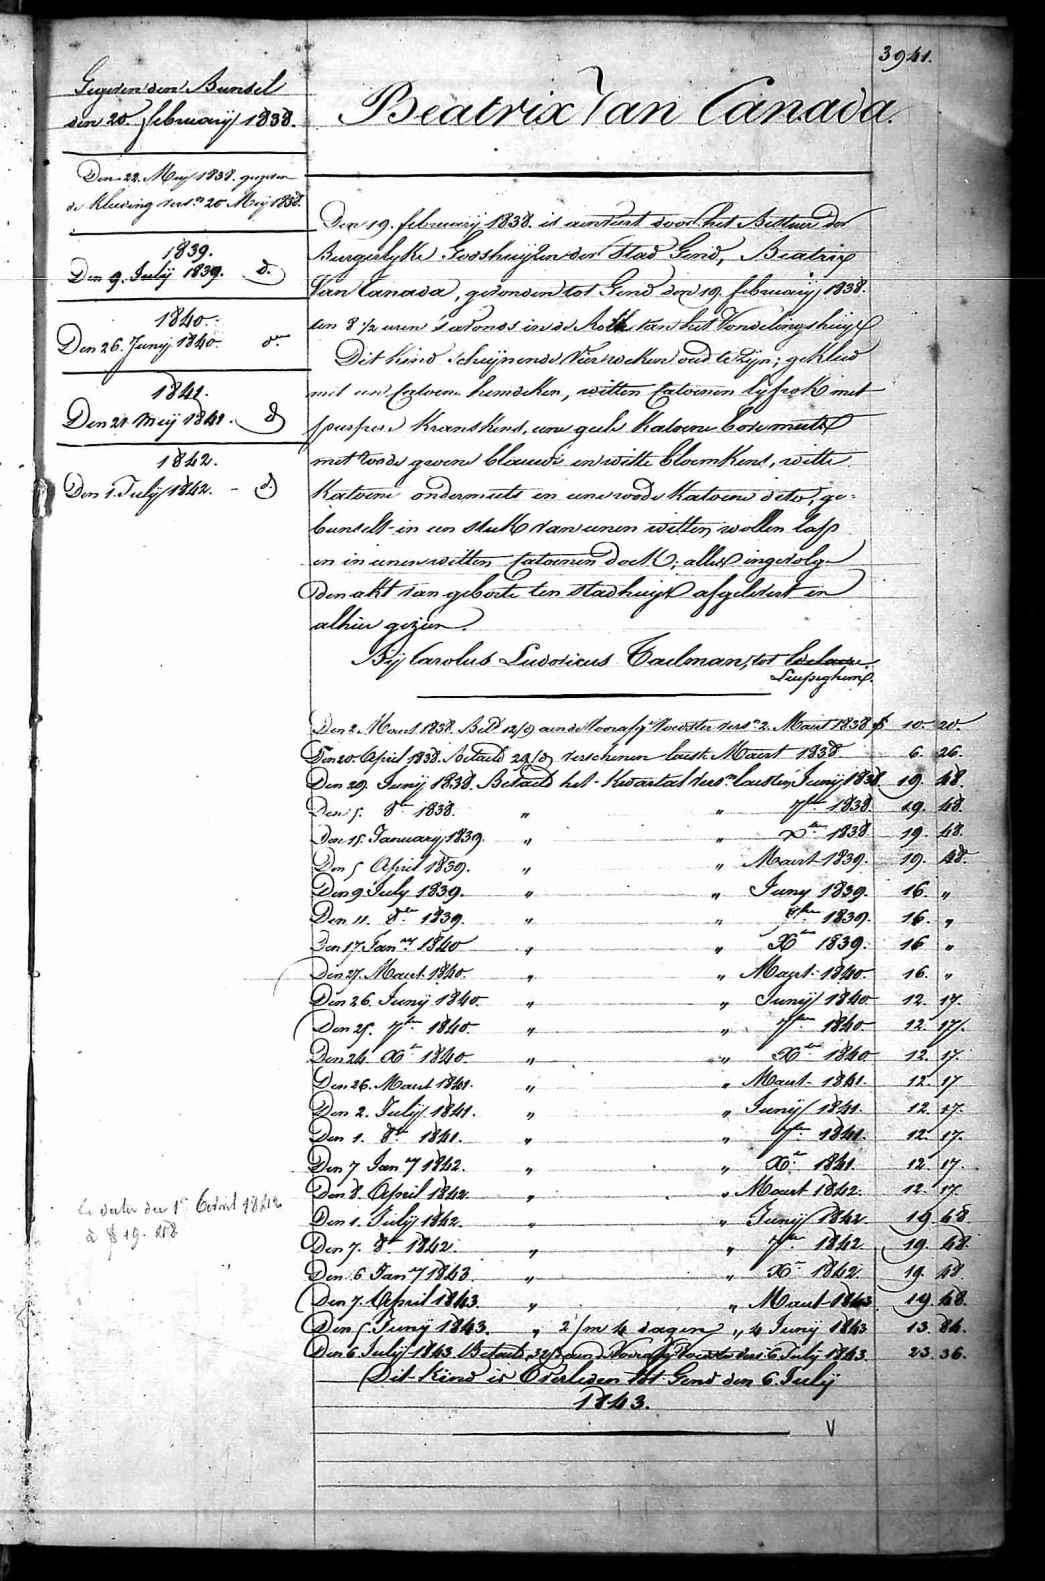 3941.
Gegeven den Bunsel
den 20. february 1838.
Den 22. Mey 1838. gegeven
de kleeding vers.n 20 Meij 1838.
1839.
Den 9. Julij 1839. d.o
1840.
Den 26. Junij 1840. d.o
1841.
Den 21 Meij 1841. d.o
1842.
Den 1. Julij 1842. - d.o
Le dater du 1.r Avril 1842
à f 19. 48
Beatrix Van Canada.
Den 19. februarij 1838. is aenveert door het Bestuer der
Burgerlyke Godshuijzen der Stad Gend, Beatrix
Van Canada, gevonden tot Gend den 19. februarij 1838.
ten 8 1/2 uren 's avonds in de Rolle van het Vondelingshuijs
Dit kind schijnende vier weken oud te zijn; gekleed
met een Catoene hemdeken, witten Catoenen lijfrok met
purpere kranskens, eene geele katoene bovenmuts
met roode geevene blauwe en witte bloemkens, witte
katoene ondermuts en eene roode katoene dito, ge-
bunselt in een stuk van eenen witten wollen lap
en in eenen witten Catoenen doek; alles ingevolge
den akt van geboorte ten Stadhuijse afgelevert en
alhier gezien.
Bij Carolus Ludovicus Taelman, tot
Leupeghem.
Den 2. Maert 1838. Bet.d 12/d aen de Voorafg.e Voedster vers.n 2. Maert 1838 f 10. 20.
Den 20 April 1838. betaeld 29/d verschenen laest Maert 1838 6. 26.
Den 29. Junij 1838. Betaeld het Kwartael vers.n laesten Junij 1838. 19. 48.
Den 5. 8.er 1838. " " 7.ber 1838. 19. 48.
Den 15. January 1839. " " X.ber 1838 19. 48.
Den 5 April 1839. " " Maert 1839. 19. 48.
Den 9 July 1839. " " Juny 1839. 16. "
Den 11. 8.er 1839. " " 7.ber 1839. 16. "
Den 17 Jan.ry 1840 " " X.er 1839. 16 "
Den 27. Maert 1840. " " Maert 1840. 16. "
Den 26. Junij 1840. " " Junij 1840 12. 17.
Den 25. 7.ber 1840. " " 7.ber 1840 12. 17.
Den 24 X.er 1840. " " X.er 1840 12. 17.
Den 26. Maert 1841. " " Maert 1841. 12. 17
Den 2. Julij 1841. " " Junij 1841. 12. 17.
Den 1. 8.er 1841. " " 7.er 1841. 12. 17.
Den 7 Jan.ry 1842. " " X.er 1841. 12. 17.
Den 8. April 1842. " " Maert 1842. 12. 17.
Den 1. Julij 1842. " " Junij 1842 19. 48
Den 7. 8.er 1842. " " 7.er 1842 19. 48.
Den 6 Jan.ry 1843. " " X.er 1842. 19. 48
Den 7. April 1843. " " Maert 1843 19. 48.
Den 5 Junij 1843. " 2/m 4 dagen " 4 Junij 1843 13. 84.
Den 6 Julij 1843. Betaeld 32/d aen d Voorafg. Voedster vers. 6 Julij 1843. 23. 36.
Dit kind is Overleden tot Gend den 6. Julij
1843.
V